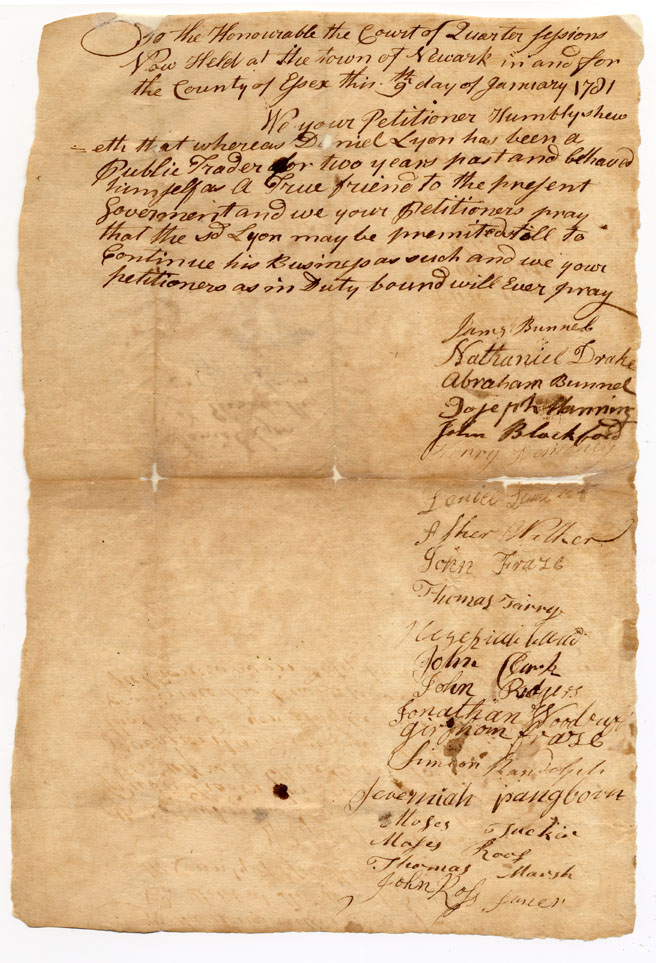 To the Honourable the Court of Quarter sessions
Now Held at the town of Newark in and for
the County of Essex this 9th day of January 1781
We your Petitioner Humbly shew
=eth that whereas Daniel Lyon has been a
Public Trader for two years past and behaved
himself as A True friend to the present
Goverment and we your Petitioners pray
that the sd Lyon may be premited still to
Continue his Business as such and we your
petitioners as in Duty bound will Ever pray
James Bunnel
Nathaniel Drake
Abraham Bunnel
Joseph Manning
John Blackford
Henry
Daniel
Asher Wilker
John Fraze
Thomas Tarry
John Clark
John Rodgers
Jonathan Woodruf
Girshom fraze
Simeon Randolph
Jeremiah pangborn
Moses Tucker
Moses Roos
Thomas Marsh
John Ross Juner